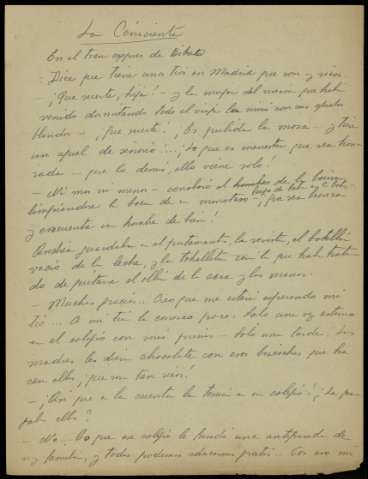 La Consciente
En el tren expres de Bilbao
- Dice que tiene una tía en Madrid que son y viven
¡Que suerte, hija! - y la mujer del marino que había
venido dormitando todo el viaje los miró con sus ojuelos
blandos - ¡Que suerte! ¡Es pulida la moza - y tiene
un aquel de señorío!... ¡Lo que es menester que sea hon-
rada - que lo demás, ello viene solo!
- Ni más ni menos - corroboró el hombre de la boina
limpiándose la boca de un - ¡que sea honrada
y encuentre un hombre de bien!
Andrea guardaba en el la revista, el botellín
vacío de la leche, y la toballeta con la que había trata-
do de quitarse el ollín de la cara y las manos.
- Muchas gracias... Creo que me estará esperando mi
tía... A mi tía la conozco poco. Solo una vez estuvo
en el colegio con mis primas - solo una tarde. Las
madres les dieron chocolate con esos bizcochos que ha-
cen ellas, ¡que son tan ricos!
- ¡Con que a la cuenta la tenían a en colegio! ¿La pa-
gaba ella?
- No... Lo que ese colegio lo fundó una antepasada de
mi familia, y todas podemos educarnos gratis... Con eso mi